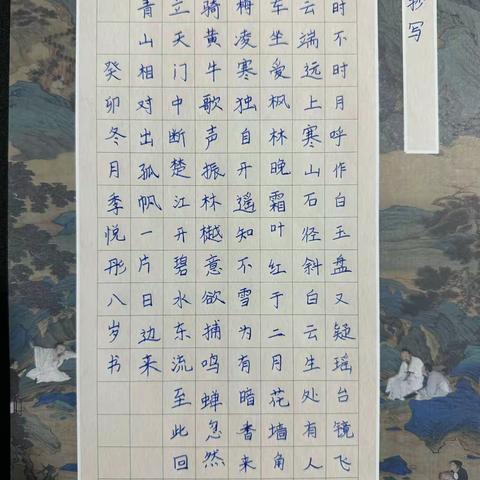 写
时不时月呼作白玉盘又疑瑶台镜飞
云端远上寒山石径斜白云生处有人
车坐爱枫林晚霜叶红于二月花墙角
梅凌寒独自开遥知不雪为有暗香来
骑黄牛歌声振林樾意欲捕鸣蝉忽然
立天门中断楚江开碧水东流至此回
青山相对出孤帆一片日边来
癸卯冬月季悦彤八岁书